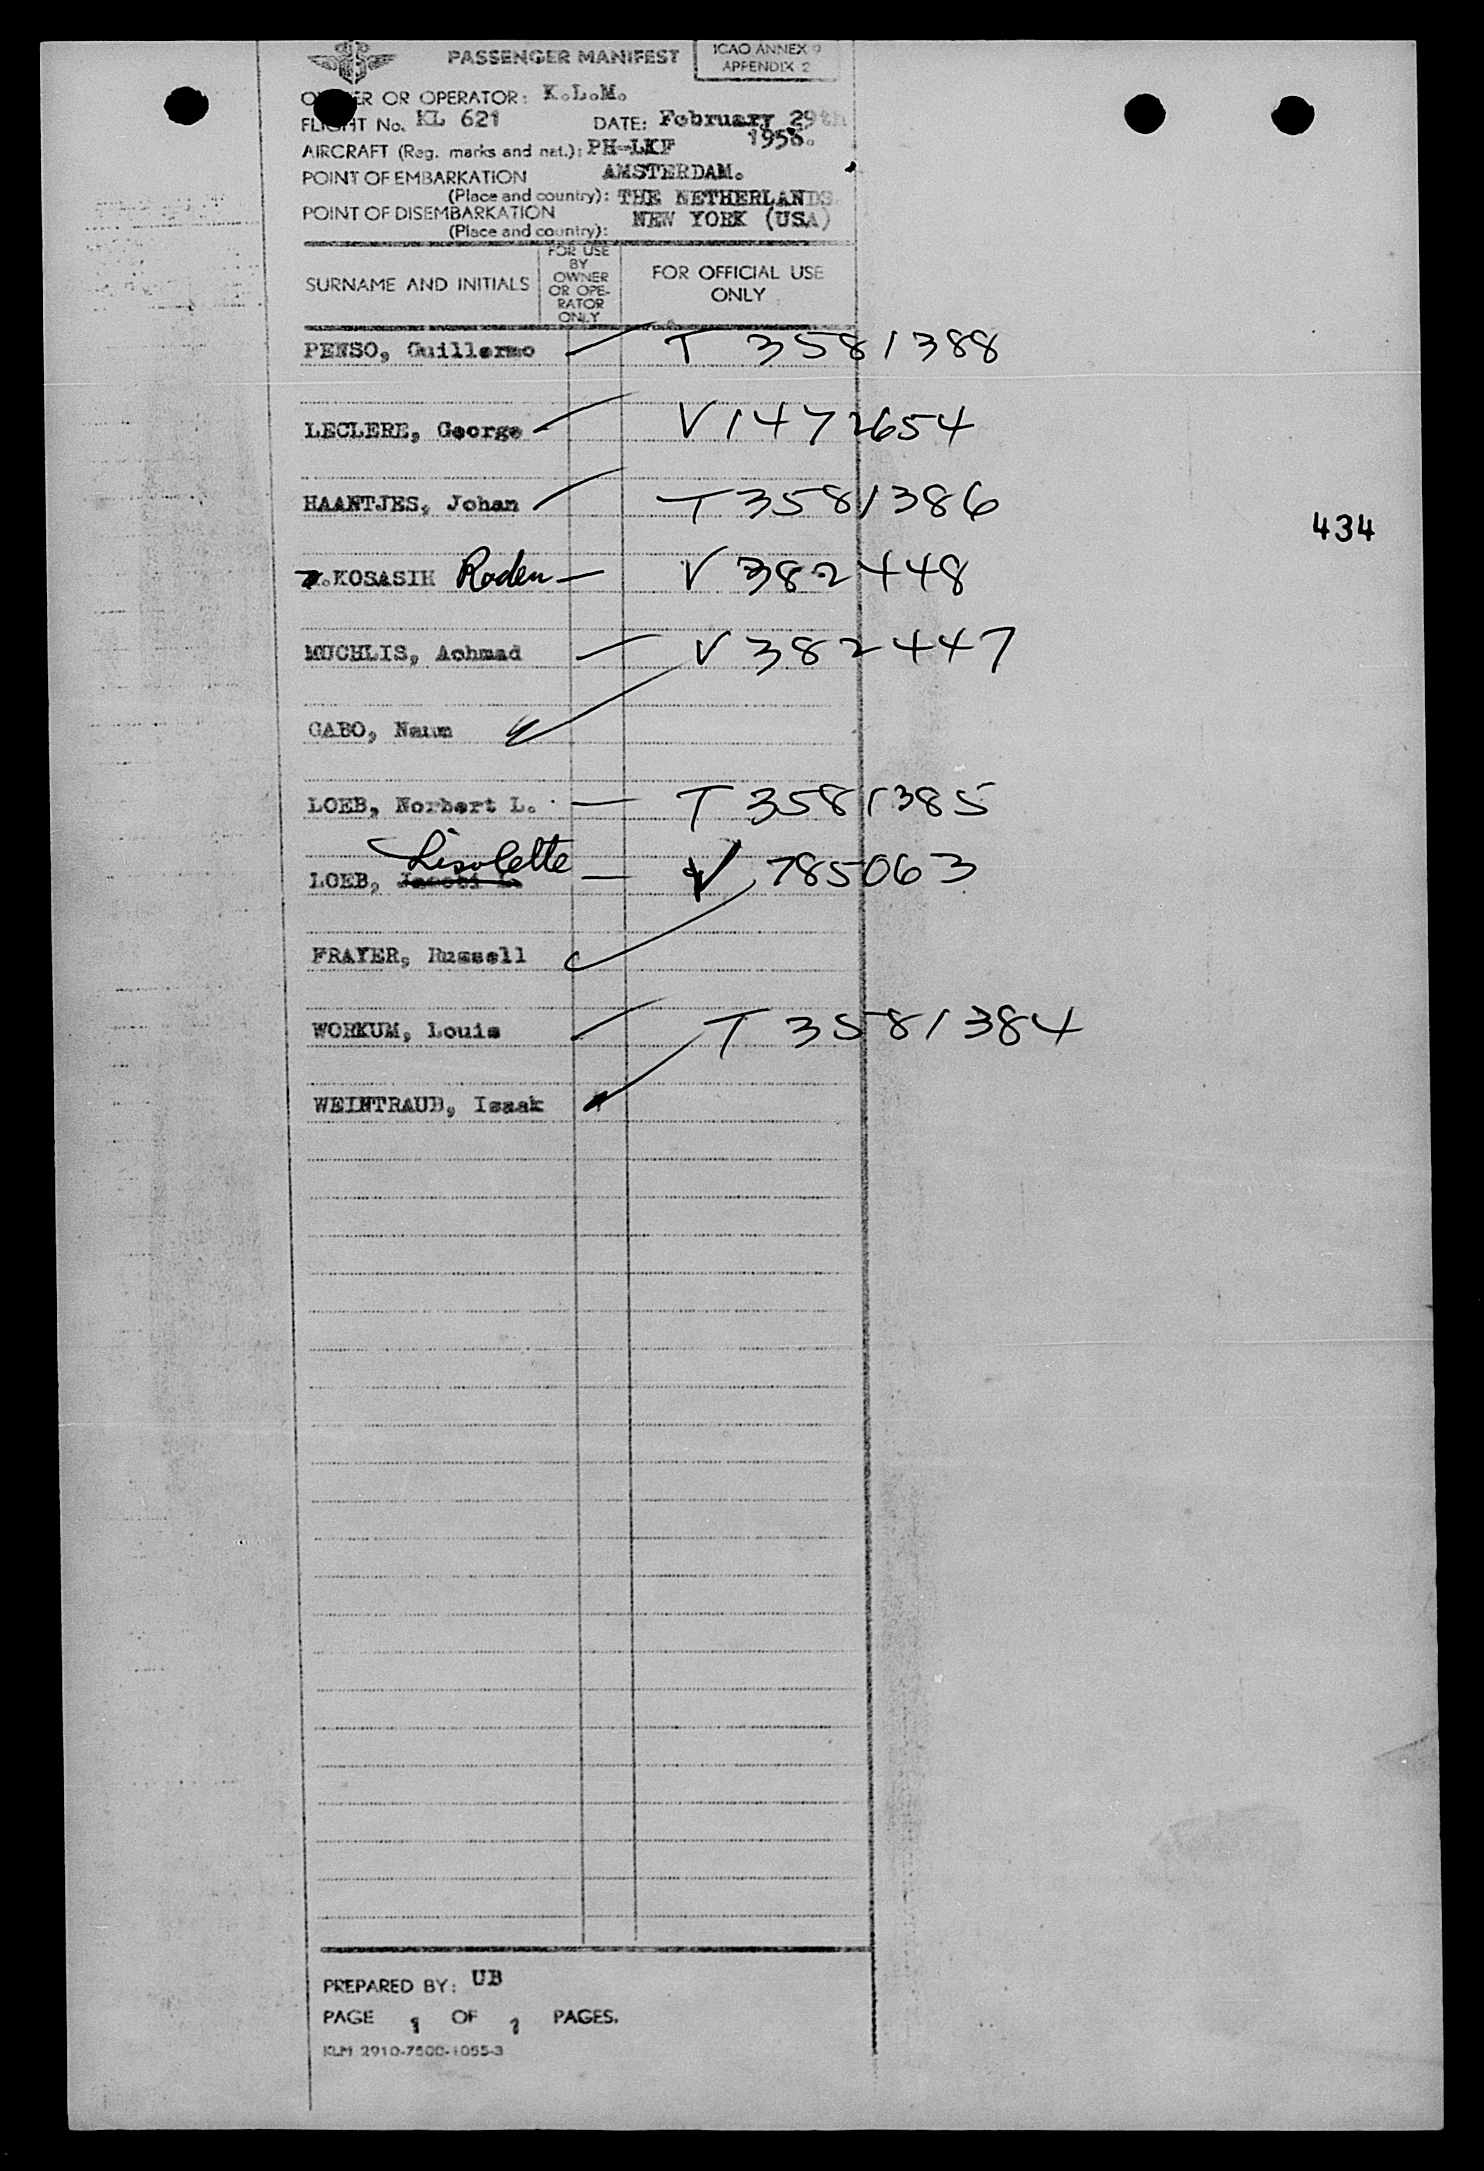 PASSENGER MANIFEST
ICAO ANNEX 9
APPENDIX 2
OWNER OR OPERATOR: K.L.M.
FLIGHT No. KL 621 DATE: February 29th
1956.
AIRCRAFT (Reg. marks and nat.): PH-LKF
POINT OF EMBARKATION AMSTERDAM.
(Place and country): THE NETHERLANDS.
POINT OF DISEMBARKATION NEW YORK (USA)
(Place and country):
SURNAME AND INITIALS
FOR USE
BY
OWNER
OR OPE-
RATOR
ONLY
FOR OFFICIAL USE
ONLY
PENSO, Guillermo T 3581388
LECLERE, George V1472654
HAANTJES, Johan T3581386
KOSASIH Raden V 382448
MUCHLIS, Achmad V 382447
GABO, Naum
LOEB, Norbert L. T 3581385
Liselotte
LOEB, V 785063
FRAYER, Russell
WORKUM, Louis T 3581384
WEINTRAUB, Isaak
434
PREPARED BY: UB
PAGE 1 OF 1 PAGES.
KLM 2910-7500-1055-3